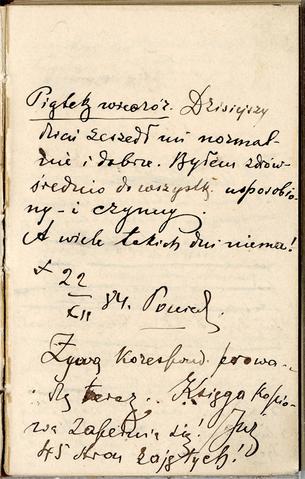 Piątek wieczór. Dzisiejszy
dzień zeszedł mi normal-
nie i dobrze. Byłem zdrów
średnio do wszystk. usposobio-
ny - i czynny.
A wiele takich dni niema!
+ 22
XII 84. Poniedz.
Żywą korespond. prowa-
dzę teraz.. Księga kopio-
wa zapełnia się! Już
45 stron zajętych!